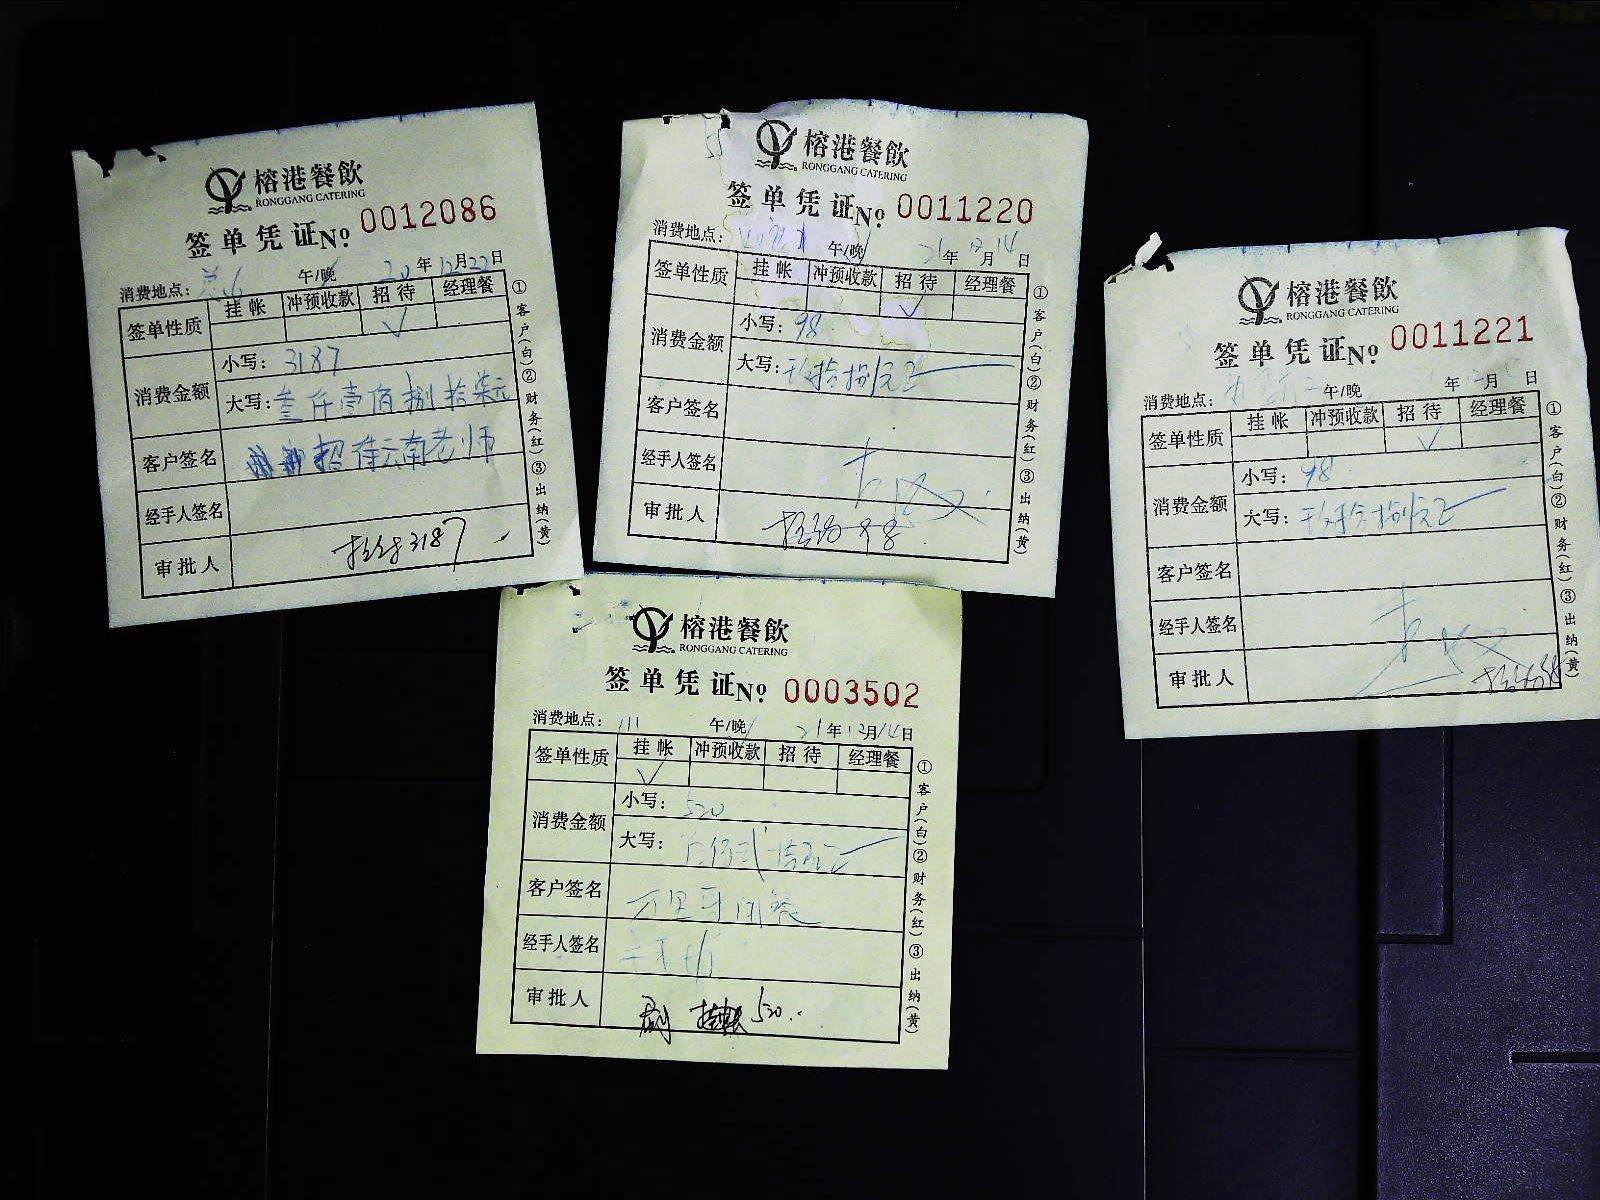 榕港餐飲
RONGGANG CATERING
签单凭证 No 0012086
消费地点: 午/晚 20年12月22日
签单性质 挂帐 冲预收款 招待 经理餐
√
消费金额 小写: 3187
大写: 叁仟壹佰捌拾柒元
客户签名 招待云南老师
经手人签名
审批人 3187
①客户(白)②财务(红)③出纳(黄)
榕港餐飲
RONGGANG CATERING
签单凭证 No 0011220
消费地点: 午/晚 21年12月14日
签单性质 挂帐 冲预收款 招待 经理餐
√
消费金额 小写: 98
大写: 玖拾捌元正
客户签名
经手人签名
审批人 98
①客户(白)②财务(红)③出纳(黄)
榕港餐飲
RONGGANG CATERING
签单凭证 No 0011221
消费地点: 午/晚 年12月 日
签单性质 挂帐 冲预收款 招待 经理餐
√
消费金额 小写: 98
大写: 玖拾捌元正
客户签名
经手人签名
审批人 98
①客户(白)②财务(红)③出纳(黄)
榕港餐飲
RONGGANG CATERING
签单凭证 No 0003502
消费地点: 111 午/晚 21年12月14日
签单性质 挂帐 冲预收款 招待 经理餐
√
消费金额 小写: 520
大写: 伍佰贰拾元正
客户签名
经手人签名
审批人 挂帐 520
①客户(白)②财务(红)③出纳(黄)